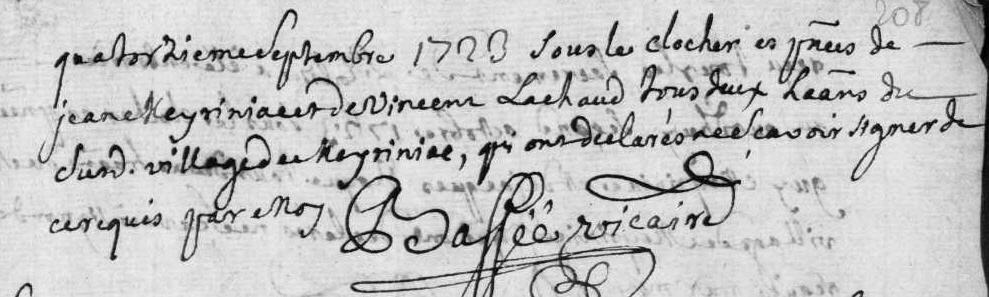 208
quatorzieme septembre 1723 sous le clocher es pñces de
jeane Meyriniac et de vincent Lachaud tous deux haãns du
susd. village de Meyriniac, qui ont declarés ne scavoir signer de
ce requis par moy Bassée vicaire